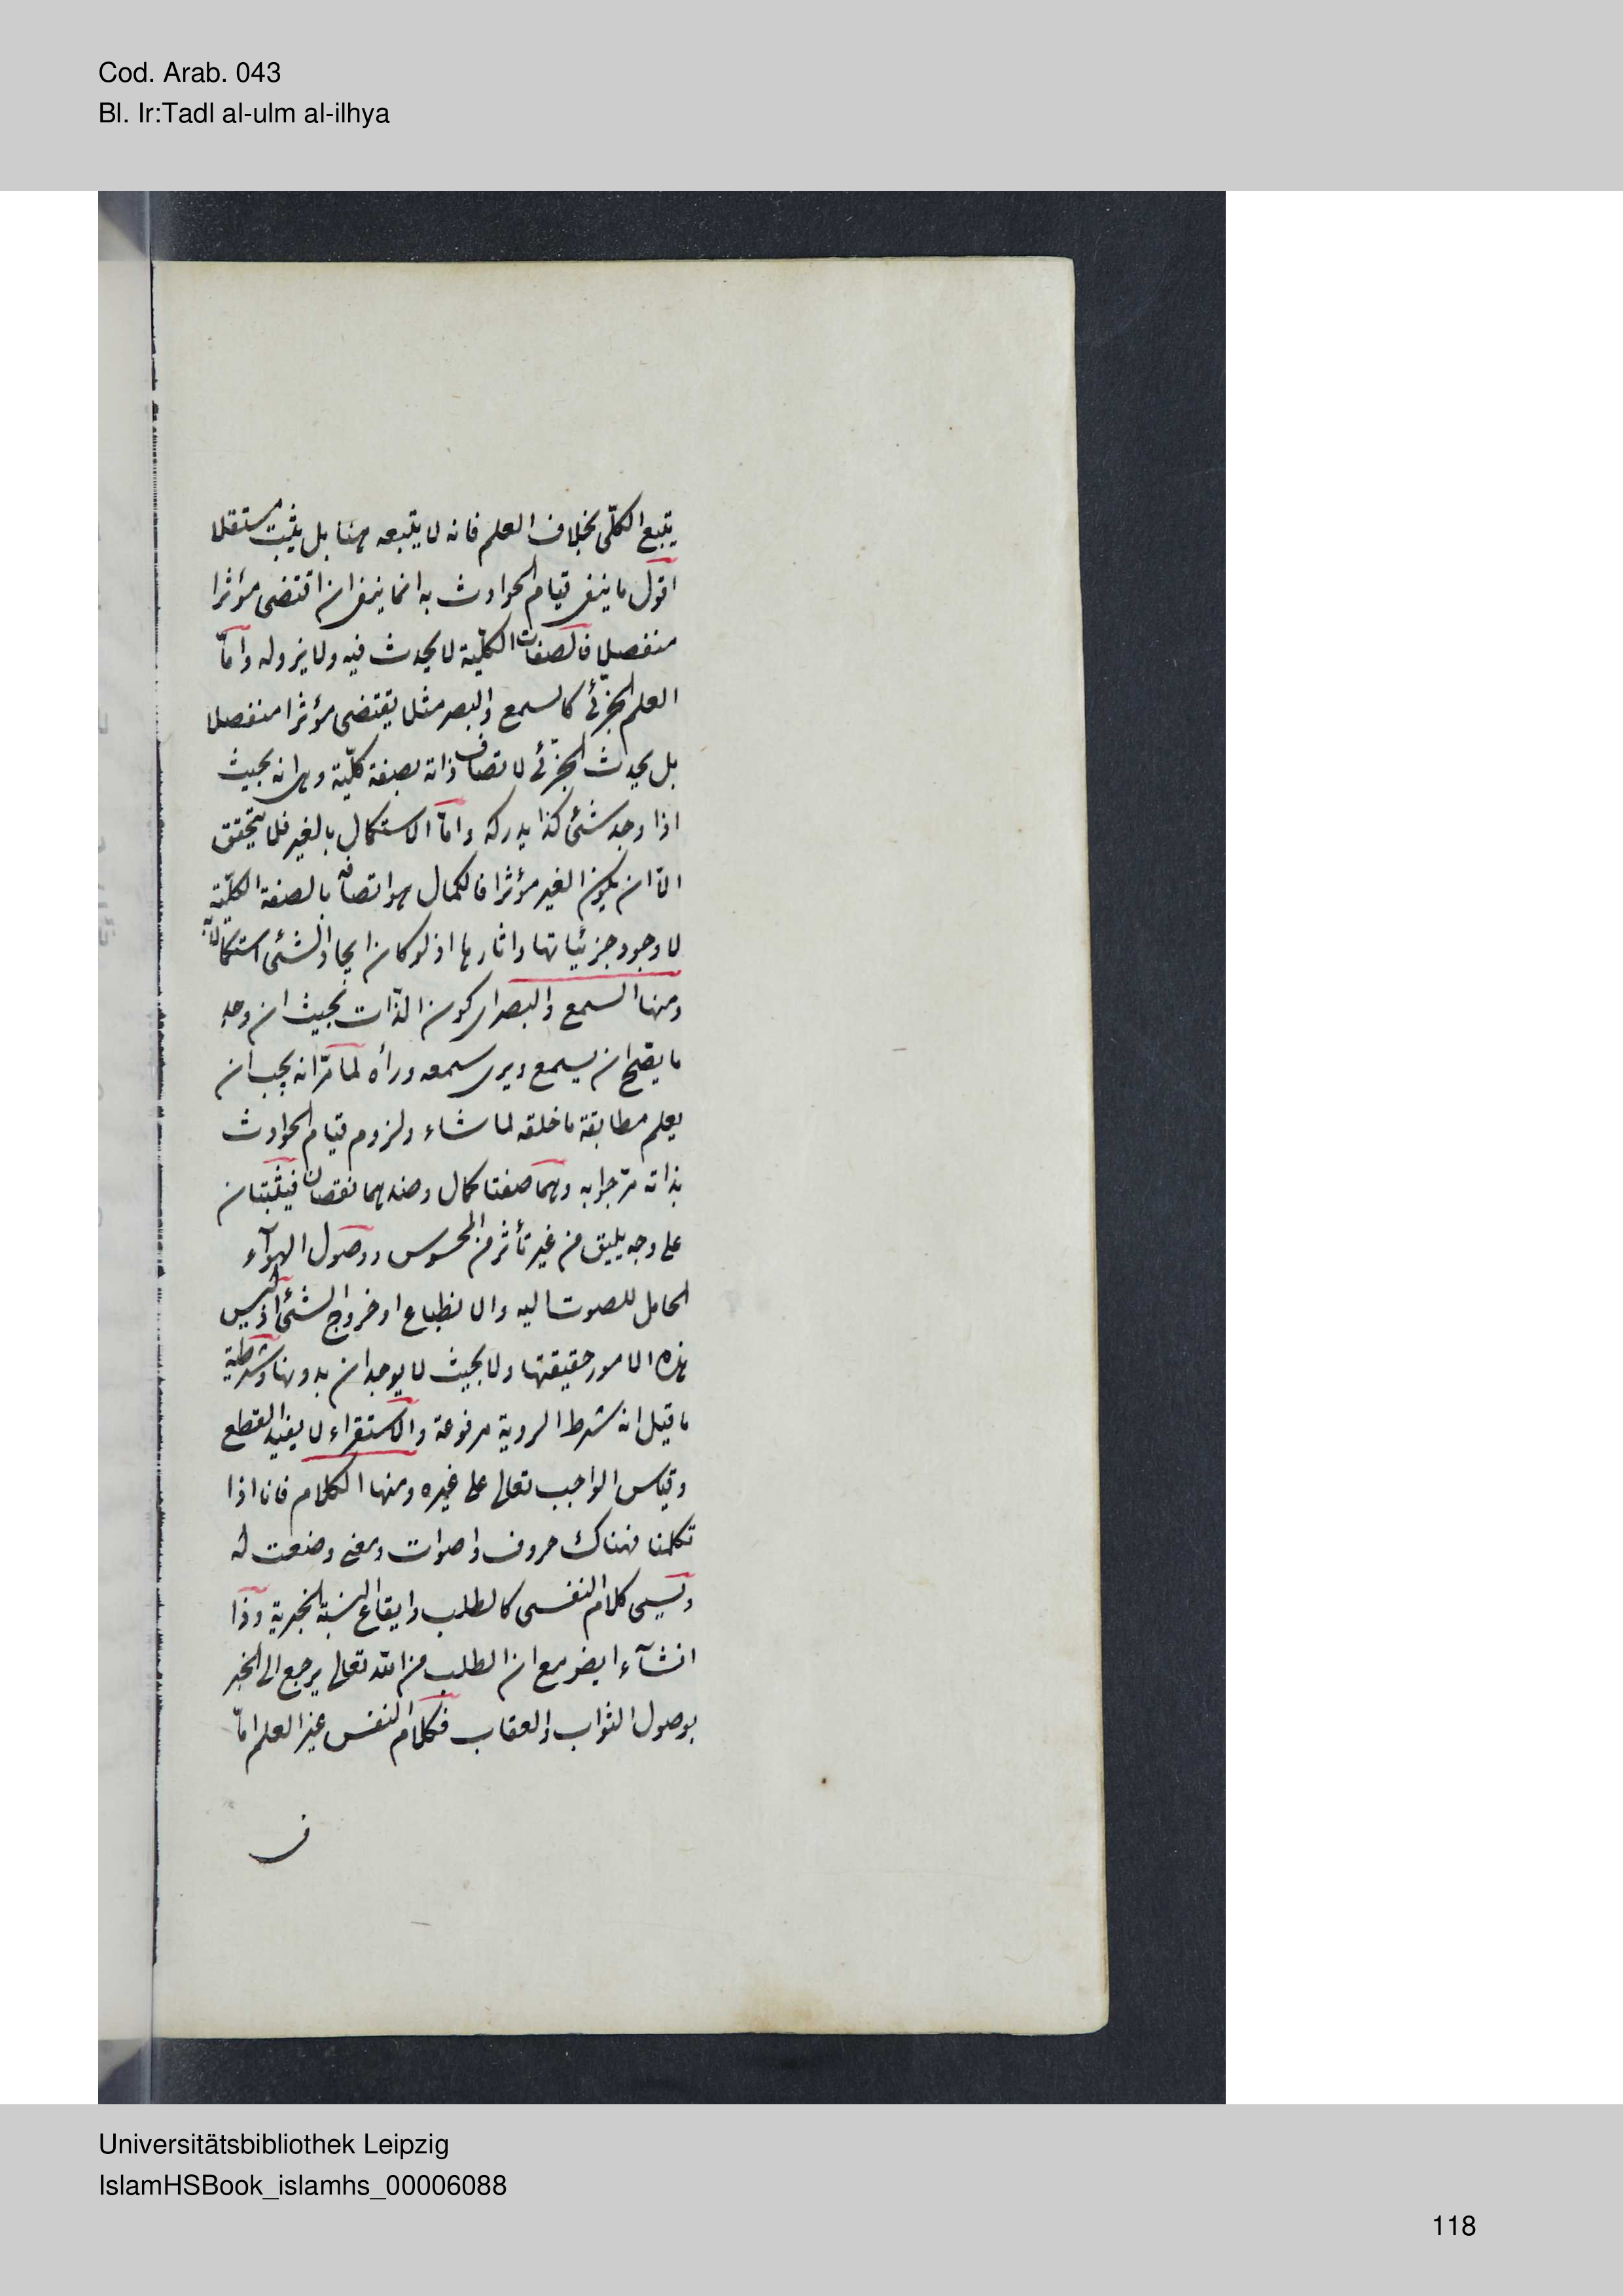 Cod. Arab. 043
Bl. Ir:Tadl al-ulm al-ilhya
يتبع الكلّى بخلاف العلم فانه لا يتبعه هنا بل يثبت مستقلا
اقول ما ينفى قيام الحوادث به انما ينفى ان اقتضى مؤثرا
منفصلا فالصفات الكلّية لا يحدث فيه ولا يزوله وامّا
العلم الجزئى كالسمع والبصر مثلا يقتضى مؤثرا منفصلا
بل يحدث الجزئى لاتصاف ذاته بصفة كلّية وهى انه بحيث
اذا وجد شئ كذا يدركه وامّا الاستكمال بالغير فلا يتحقق
الّا ان يكون الغير مؤثرا فالكمال هو اتصافه بالصفة الكلّية
لا وجود جزئياتها واثارها اذ لو كان ايجاد الشئ استكمالا
ومنها السمع والبصر اى كون الذات بحيث ان وجد
ما يصح ان يسمع ويرى سمعه ورأه لما مرّ انه يجب ان
يعلم مطابقة ما خلقه لما شاء ولزوم قيام الحوادث
بذاته مرّ جوابه وهما صفتا كمال وضدهما نقصان فيثبتان
على وجه يليق من غير تأثر من المحسوس ووصول الهوآء
الحامل للصوت اليه والانطباع او خروج الشئ اذ ليس
هذه الامور حقيقتها ولا بحيث لا يوجدان بدونها وشرطية
ما قيل انه شرط الروية مرفوعة والاستقراء لا يفيد القطع
وقياس الواجب تعالى على غيره ومنها الكلام فانا اذا
تكلمنا فهناك حروف واصوات ومعنى وضعت له
ويسمى كلام النفسى كالطلب وايقاع النسبة الخبرية وذا
انشآء ايضا مع ان الطلب من الله تعالى يرجع الى الخبر
بوصول الثواب والعقاب فكلام النفس غير العلم امّا
Universitätsbibliothek Leipzig
IslamHSBook_islamhs_00006088
118